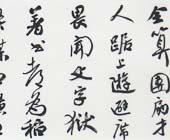 全算團扇才
人踞上遊避席
畏聞文字獄
著書都為稻